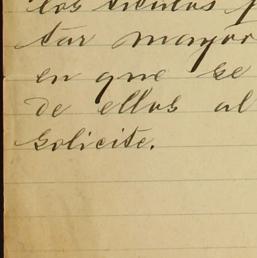 los títulos
tar mayor
en que se
de ellos al
solicite.